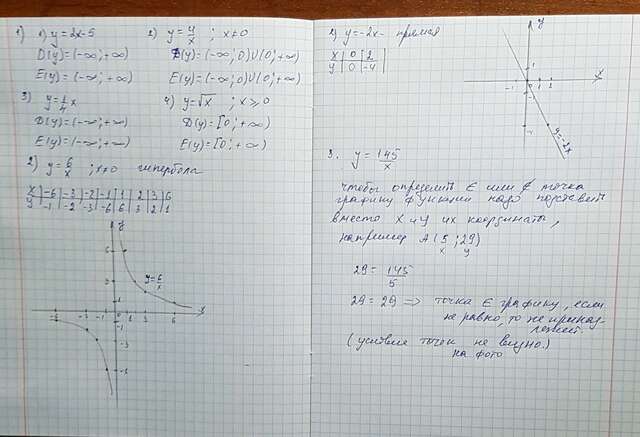 1) 1) y = 2x-5
D(y) = (-∞; +∞)
E(y) = (-∞; +∞)
2) y = 4/x ; x≠0
D(y) = (-∞; 0)U(0; +∞)
E(y) = (-∞; 0)U(0; +∞)
3) y = 1/4 x
D(y) = (-∞; +∞)
E(y) = (-∞; +∞)
4) y = √x ; x ⩾ 0
D(y) = [0; +∞)
E(y) = [0; +∞)
2) y = 6/x ; x≠0 гипербола
x | -6 | -3 | -2 | -1 | 1 | 2 | 3 | 6
y | -1 | -2 | -3 | -6 | 6 | 3 | 2 | 1
y = 6/x
2) y = -2x - прямая
x | 0 | 2
y | 0 | -4
y = -2x
3. y = 145/x
чтобы определить ∈ или ∉ точка
графику функции надо подставить
вместо x и y их координаты,
например A(5; 29)
x y
29 = 145/5
29 = 29 => точка ∈ графику, если
не равно, то не принад-
лежит.
(условие точек не видно)
на фото